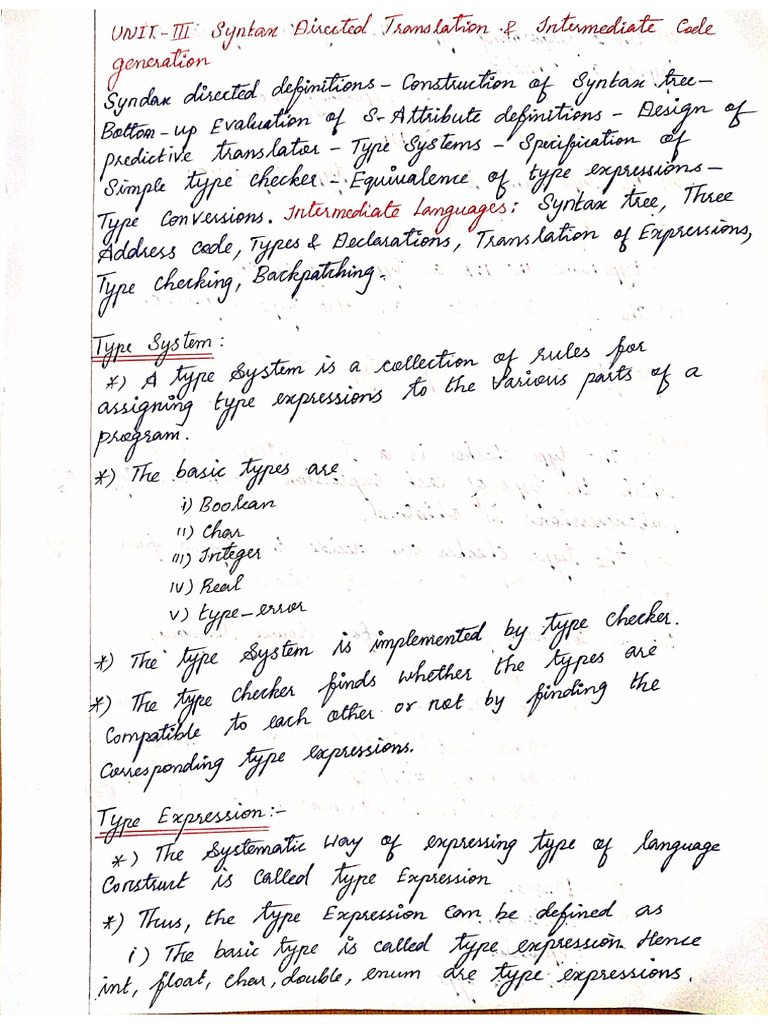 UNIT-III Syntax Directed Translation & Intermediate Code
generation
Syndax directed definitions - Construction of Syntax tree -
Bottom-up Evaluation of S-Attribute definitions - Design of
predictive translator - Type Systems - Specification of
Simple type checker - Equivalence of type expressions -
Type Conversions. Intermediate Languages: Syntax tree, Three
Address code, Types & Declarations, Translation of Expressions,
Type checking, Backpatching.
Type System:
*) A type System is a collection of rules for
assigning type expressions to the various parts of a
program.
*) The basic types are
i) Boolean
ii) Char
iii) Integer
iv) Real
v) type-error
*) The type System is implemented by type checker.
*) The type checker finds whether the types are
Compatible to each other or not by finding the
Corresponding type expressions.
Type Expression:-
*) The Systematic way of expressing type of language
Construct is called type Expression
*) Thus, the type Expression can be defined as
i) The basic type is called type expression. Hence
int, float, char, double, enum are type expressions.